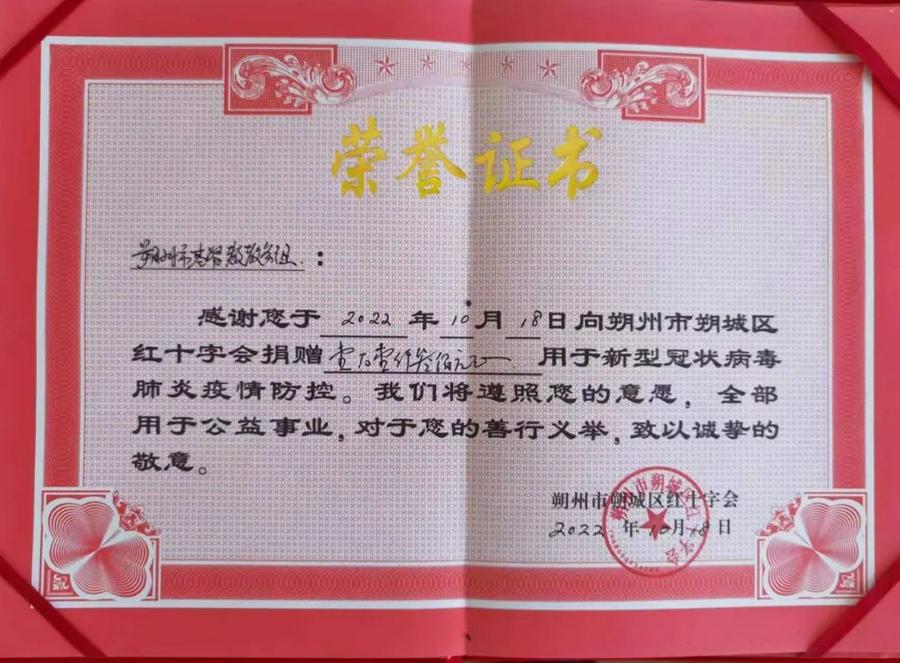 荣誉证书
朔州市基督教教会组：
感谢您于 2022 年 10 月 18 日向朔州市朔城区
红十字会捐赠 壹万壹仟 佰元 用于新型冠状病毒
肺炎疫情防控。我们将遵照您的意愿，全部
用于公益事业，对于您的善行义举，致以诚挚的
敬意。
朔州市朔城区红十字会
2022 年 10 月 18 日
朔州市朔城区红十字会